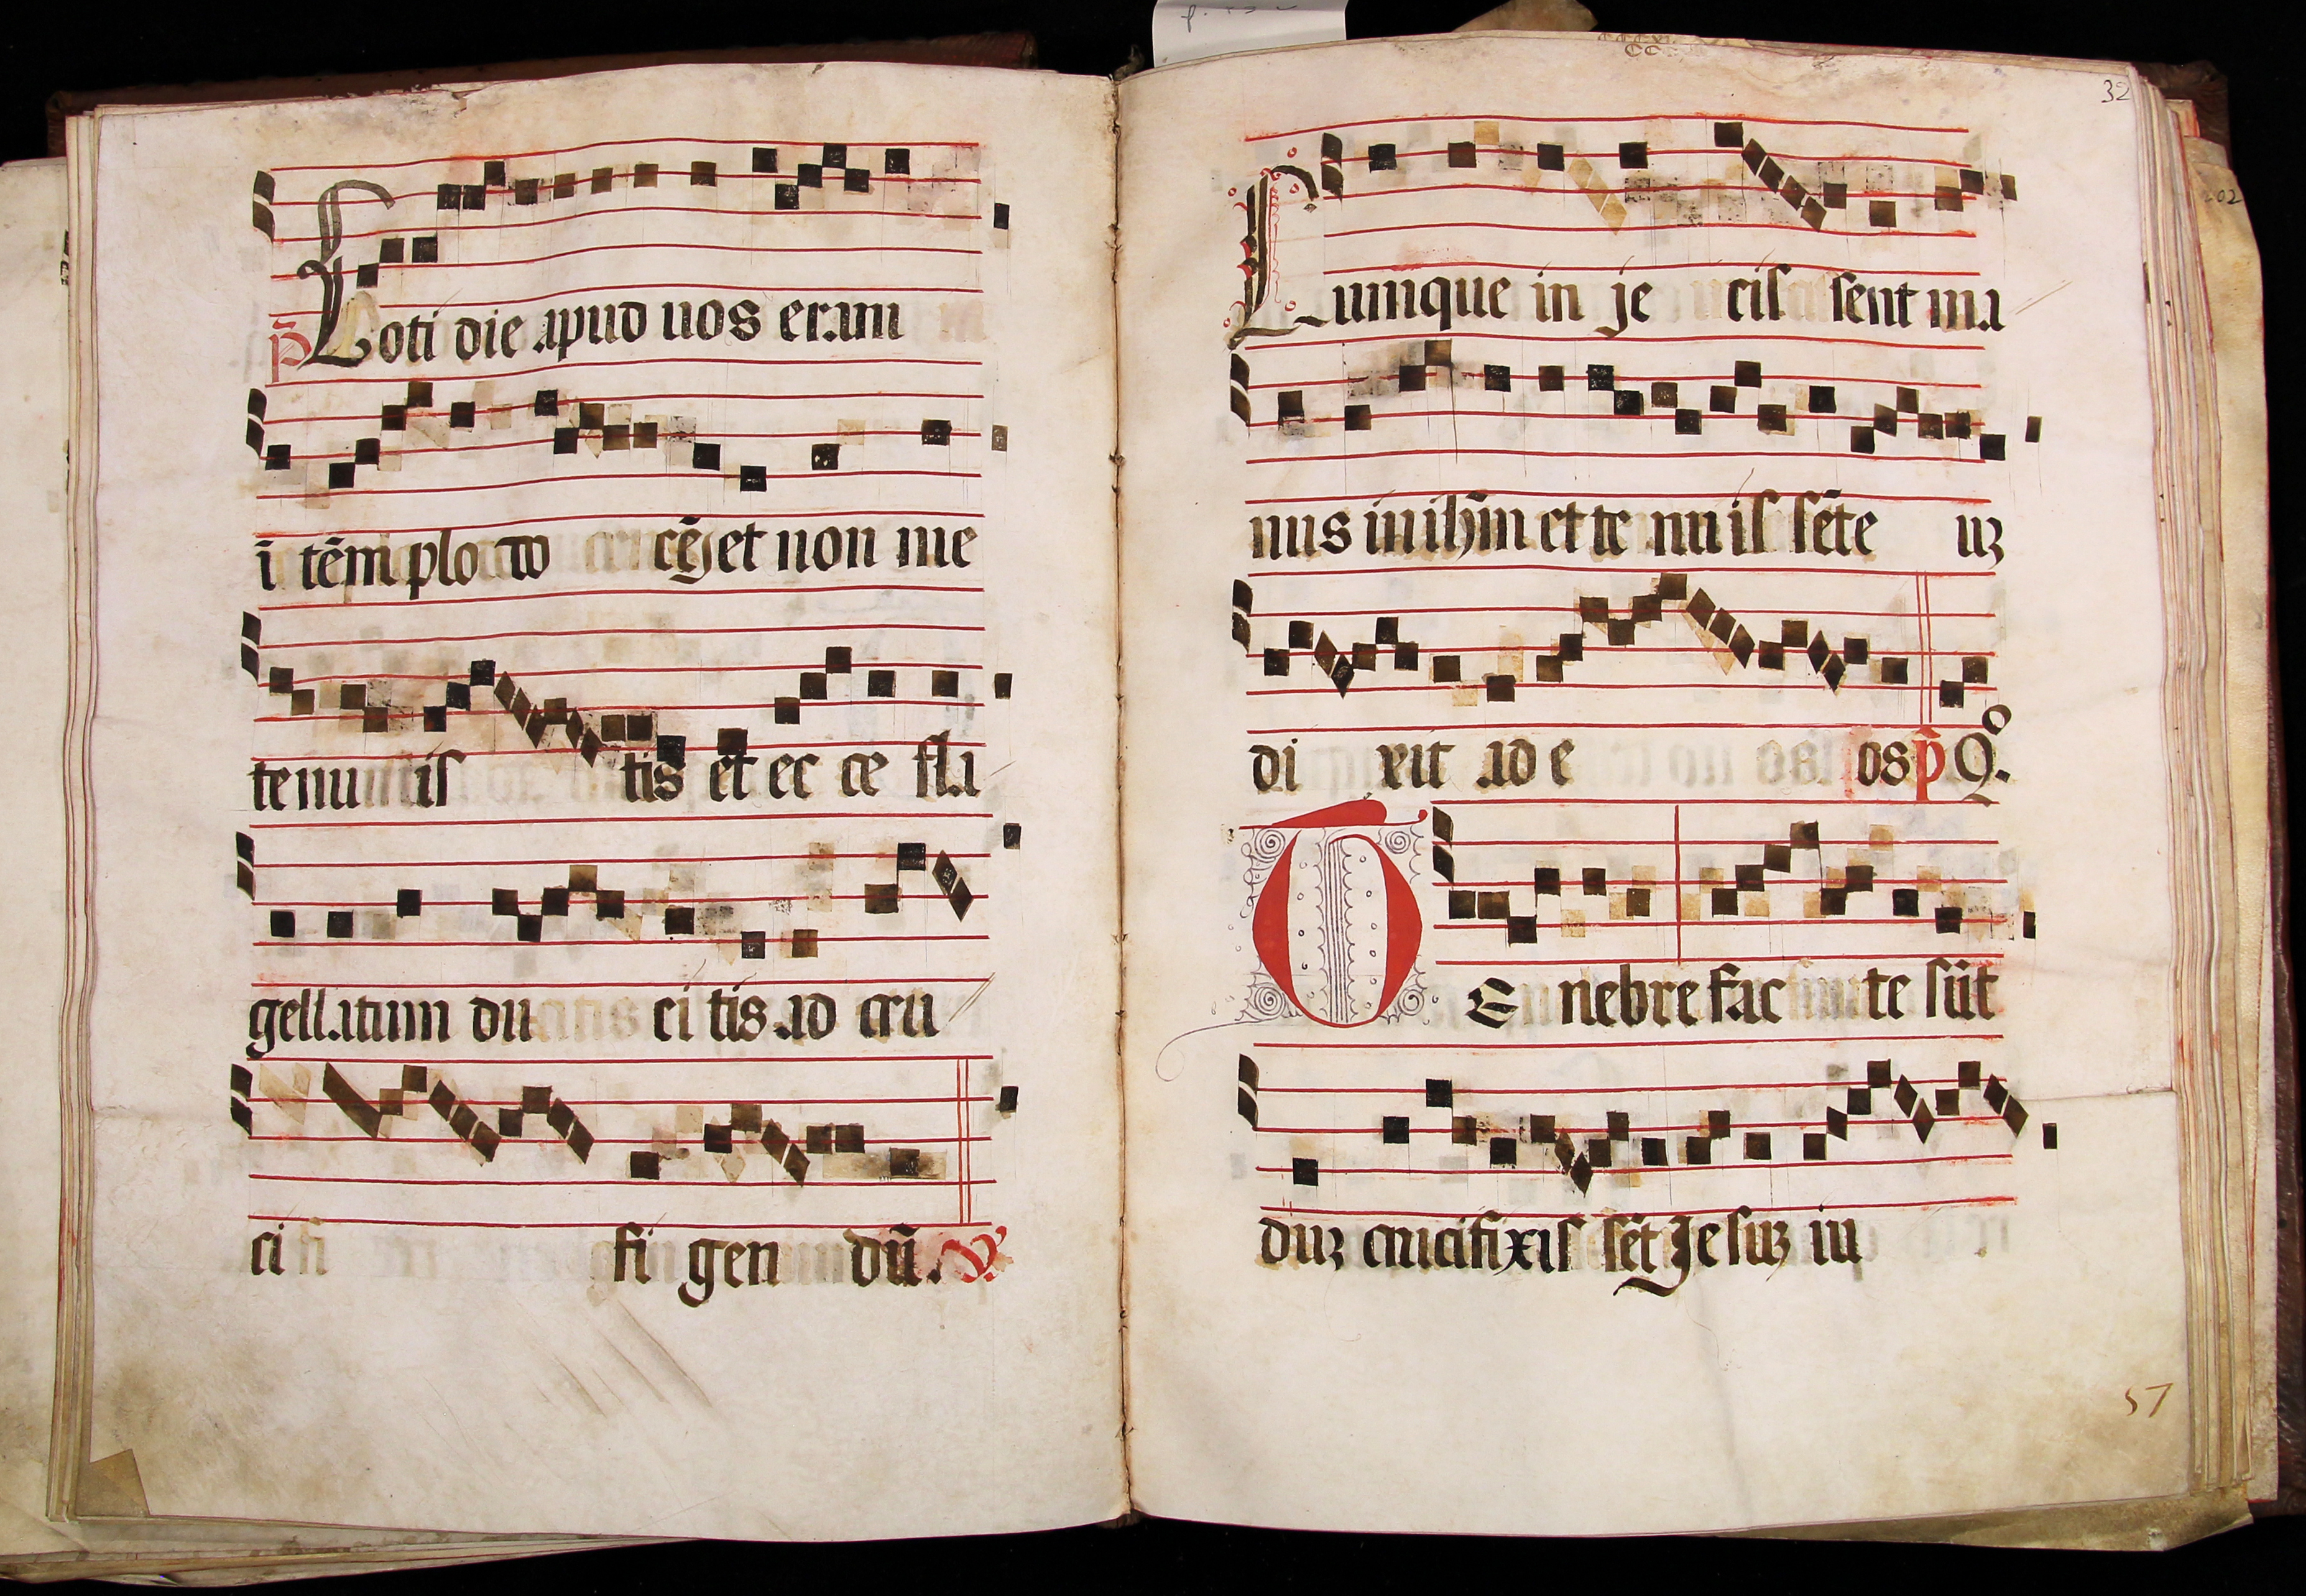 p̄ Coti die apud uos eram
ī tēmplo do cēs et non me
tenu is tis et ec ce fla
gellatum du ci tis ad cru
ci fi gen dū. V.
32
Cumque in je cis sent ma
nus in ihm̄ et te nu is sēte uʒ
di xit ad e os p̄ Qo.
T E nebre fac te sūt
duʒ crucifixis sēt Jesuʒ iu
57